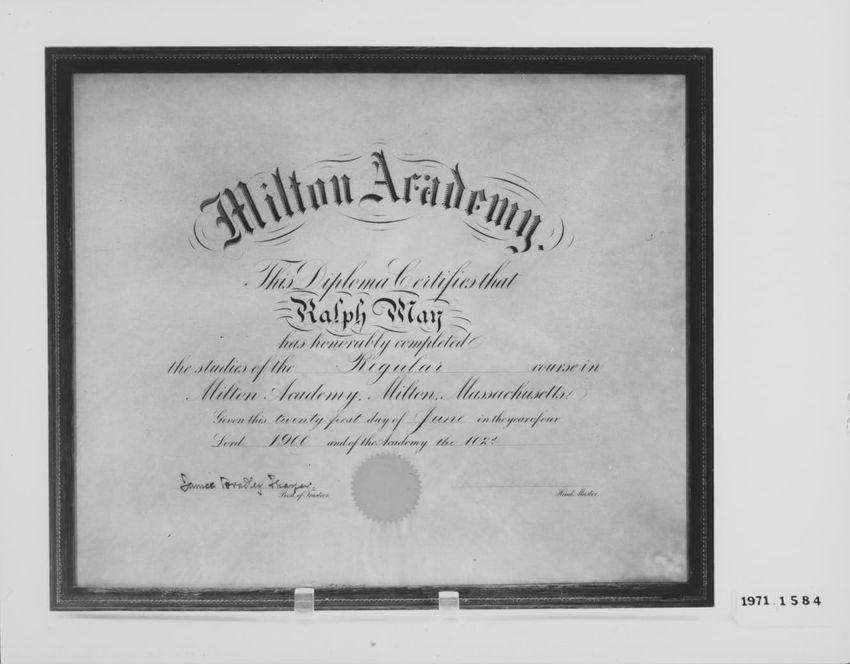 Milton Academy.
This Diploma Certifies that
Ralph May
has honorably completed
the studies of the Regular course in
Milton Academy, Milton, Massachusetts.
Given this twenty first day of June in the year of our
Lord 1900 and of the Academy the 102d
James Bradley Thayer.
Pres. of Trustees
Head Master
1971.1584